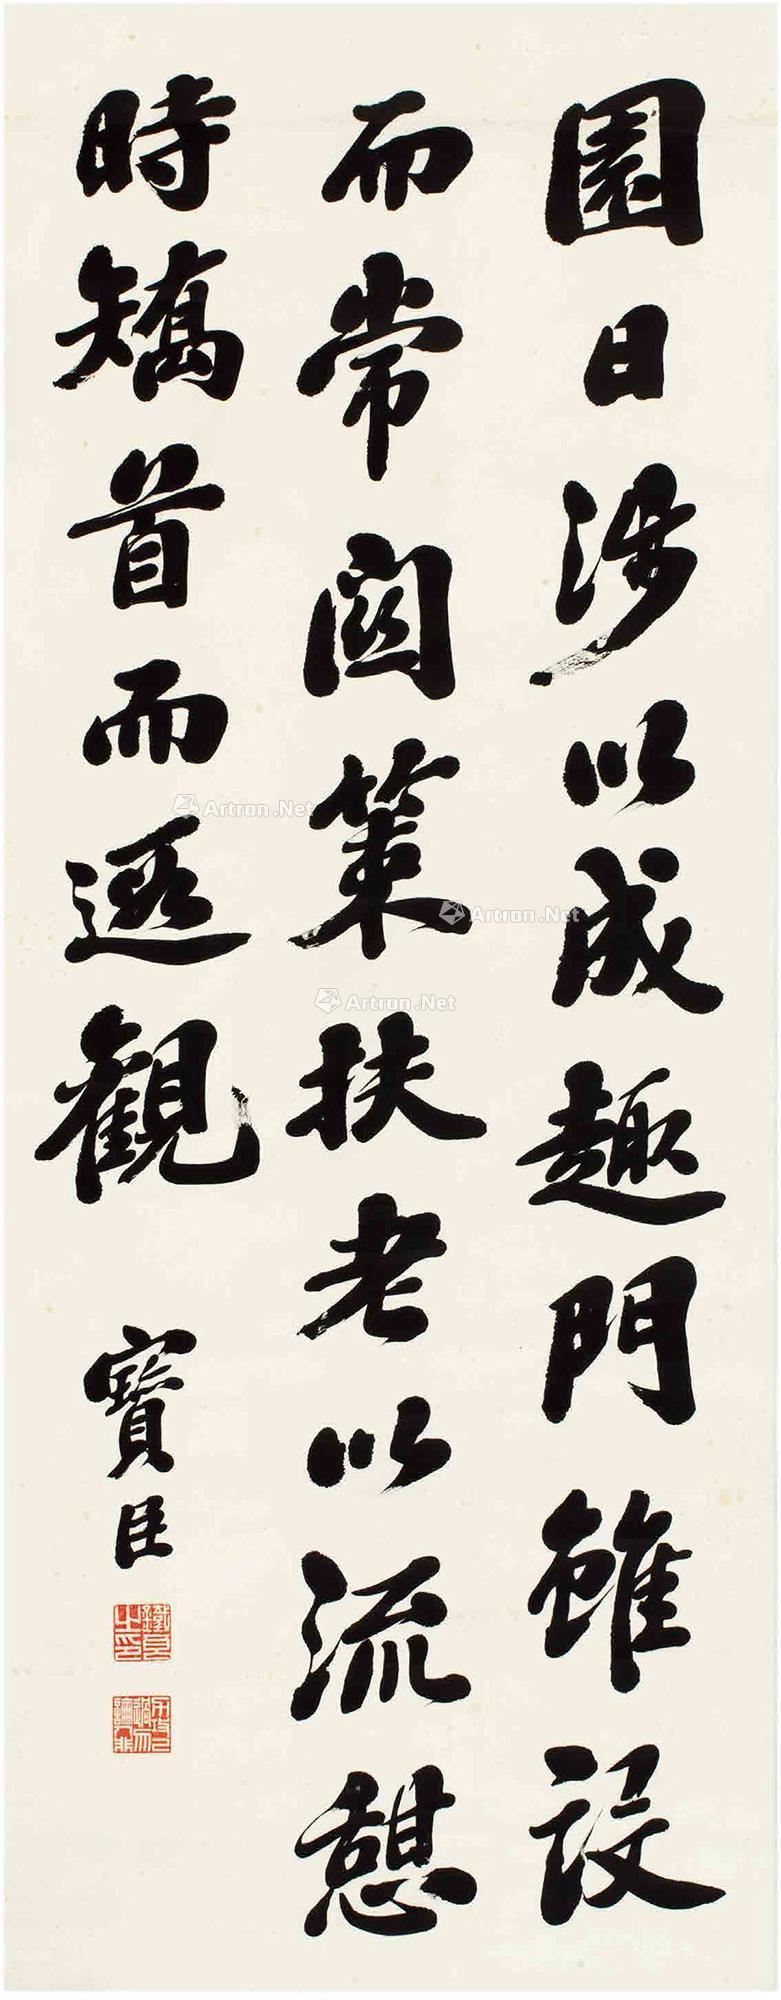 園日涉以成趣門雖設
而常關策扶老以流憩
時矯首而遐觀
寶臣
鐵良之印
Artron.Net
Artron.Net
Artron.Net